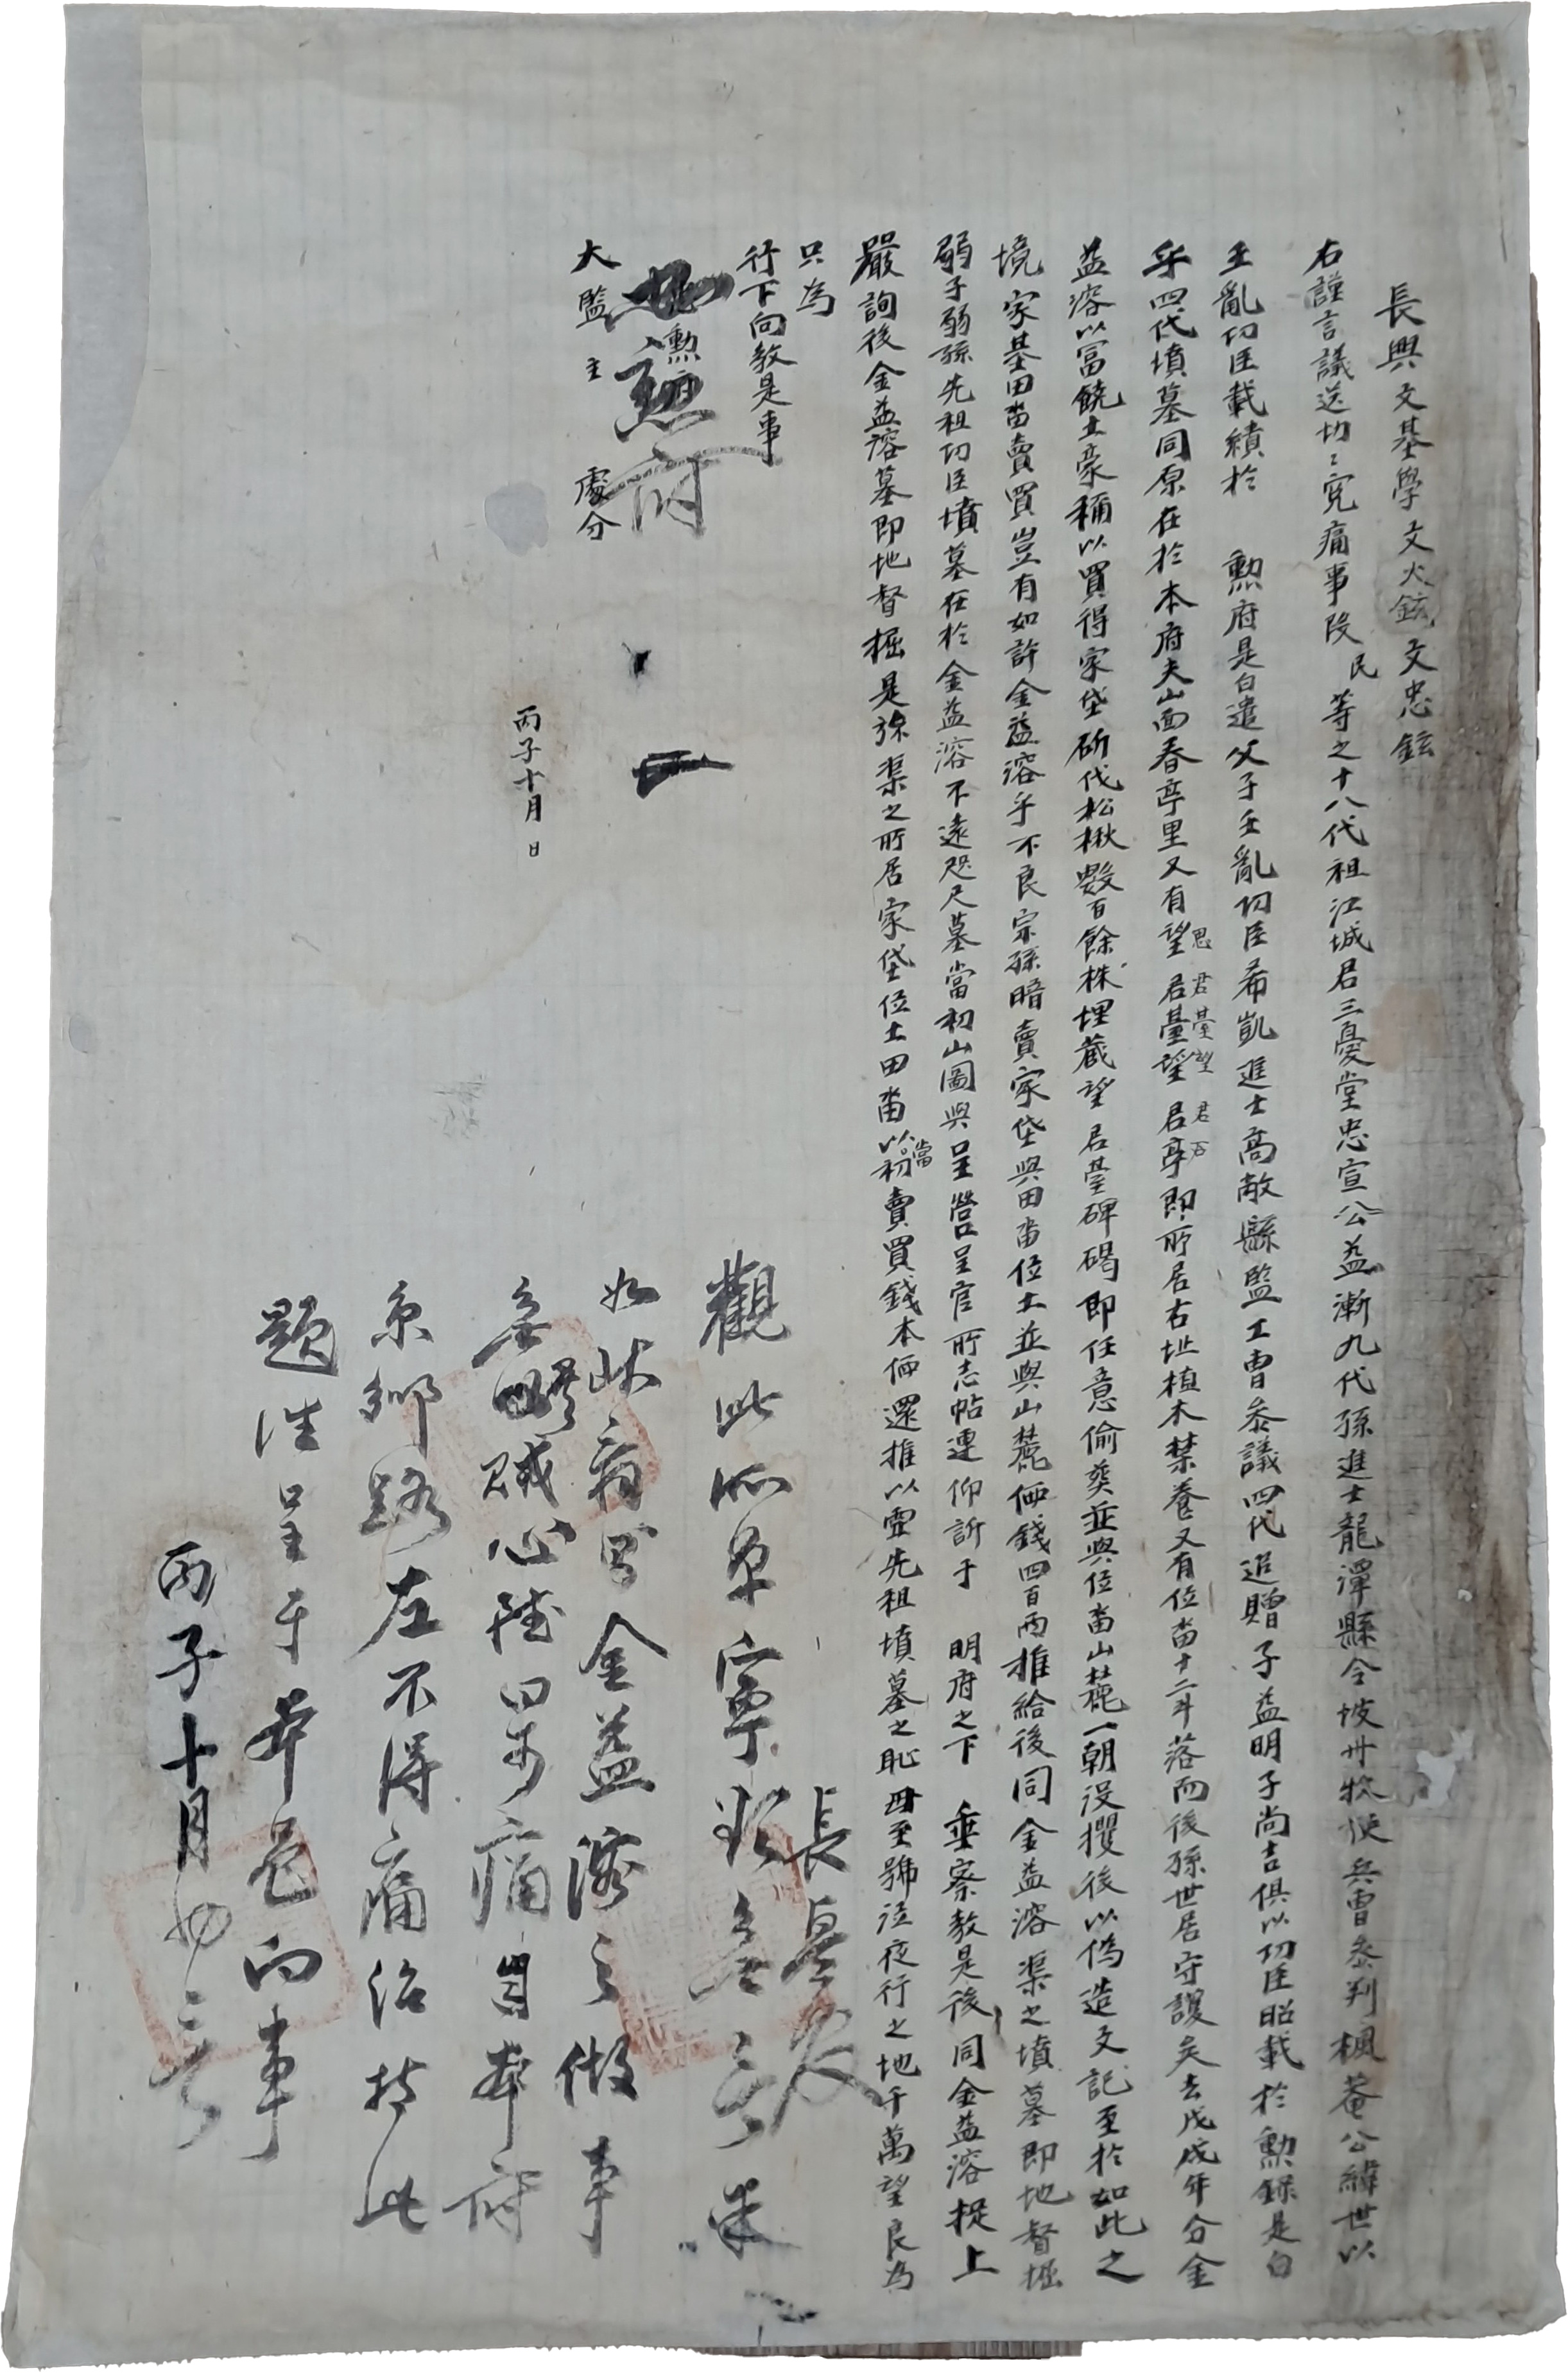 長興文基學文火鉉文忠鉉
右謹言議送切〻寃痛事段民等之十八代祖江城君三憂堂忠宣公益漸九代孫進士龍潭縣令坡州牧使兵曹參判楓菴公緯世以
壬亂功臣載績於 勲府是白遣父子壬亂功臣希凱進士高敞縣監工曹參議四代追贈子益明子尚吉俱以功臣昭載於勲錄是白
乎四代墳墓同原在於本府夫山面春亭里又有望君基望君亭即所居右址植木禁養又有位畓十二斗落而後孫世居守護矣去戊戌年分金
思君基望君百
益溶以富饒土豪稱以買得家垈斫伐松楸數百餘株埋藏望君基碑碣即任意偷葬並與位畓山麓一朝沒攫後以偽造文記至於如此之
境家基田畓賣買豈有如許金益溶乎不良宗孫暗賣家垈與田畓位土並與山麓価錢四百両推給後同金益溶渠之墳墓即地督掘
弱子弱孫先祖功臣墳墓在於金益溶不遠咫尺墓當初山圖與呈營呈官所志帖連仰訴于 明府之下 垂察教是後同金益溶捉上
嚴詢後金益溶墓即地督掘是旀渠之所居家垈位土田畓以當初賣買錢本価還推以雪先祖墳墓之恥毋至號泣夜行之地千萬望良為
只為
行下向教是事
勲府
大監主 處分
丙子十月 日
忠勲府
長興
觀此所早寧
如此 金益溶之做事
無 賊心 自本府
京鄉 左不得 治持此
題 呈于本邑向事
丙子十月